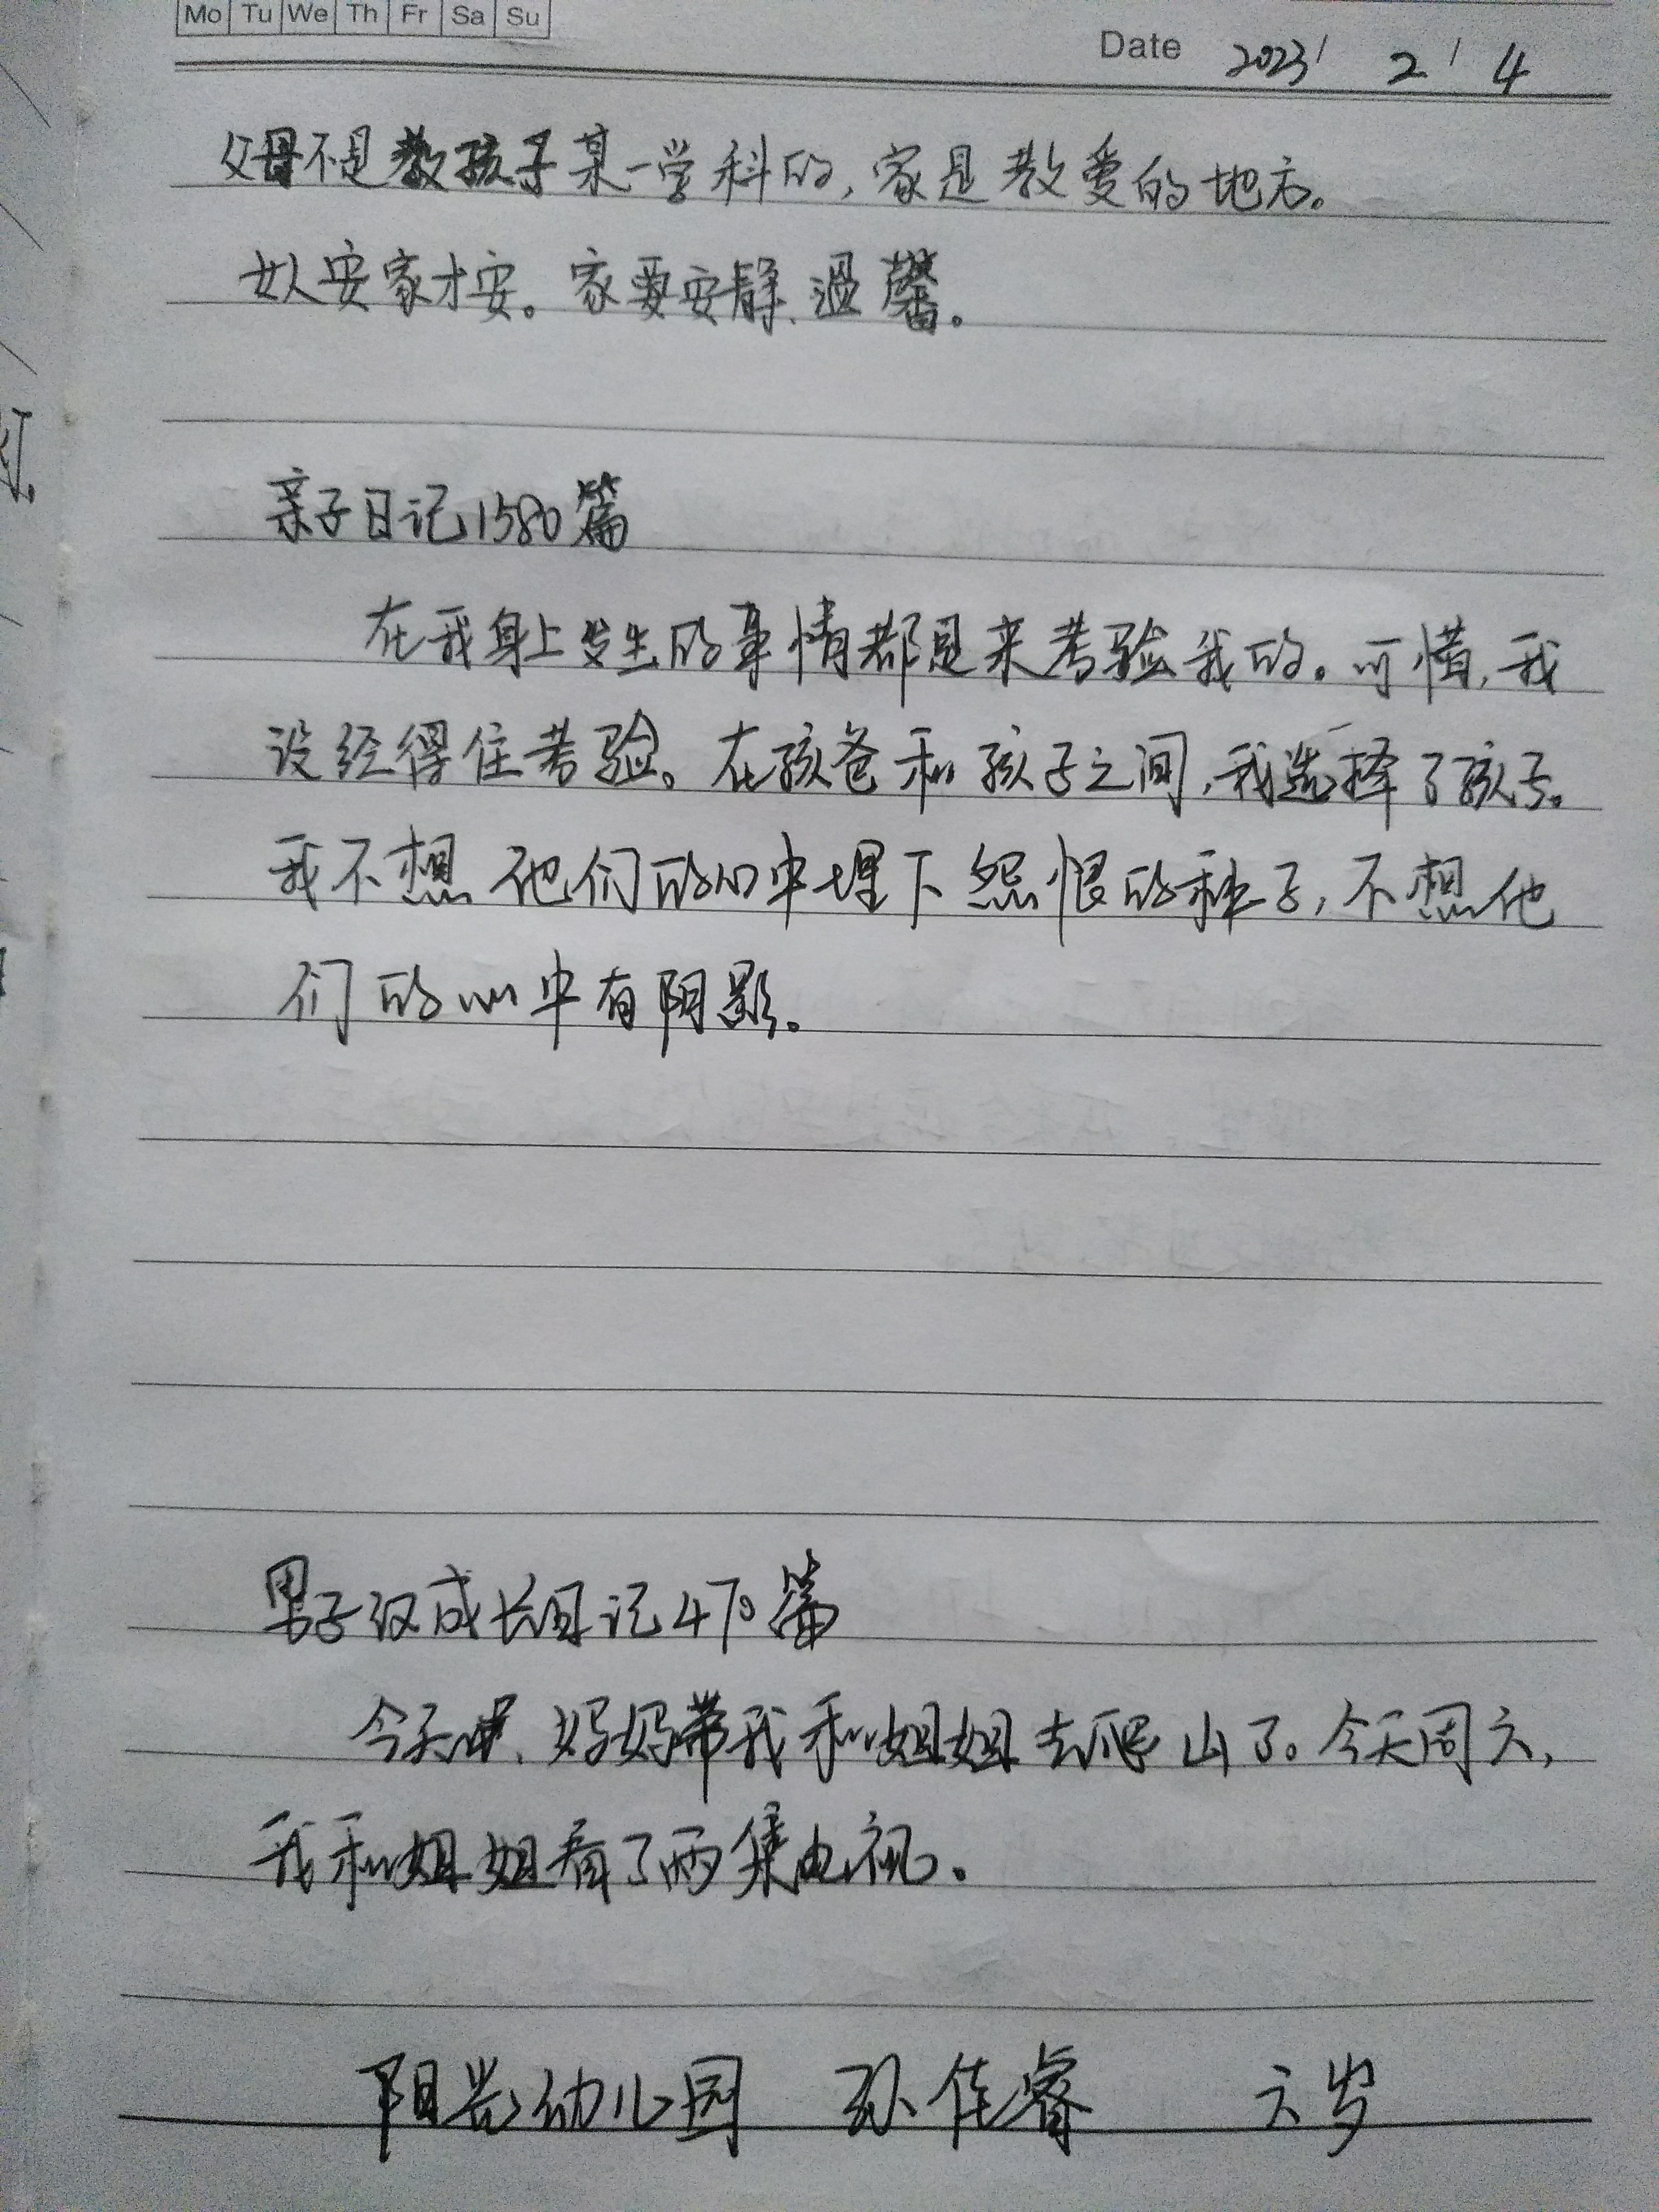 Mo Tu We Th Fr Sa Su
Date 2023 / 2 / 4
父母不是教孩子某一学科的，家是教爱的地方。
女人安家才安。家要安静、温馨。
亲子日记1580篇
在我身上发生的事情都是来考验我的。可惜，我
没经得住考验。在孩爸和孩子之间，我选择了孩子。
我不想他们的心中埋下怨恨的种子，不想他
们的心中有阴影。
男子汉成长日记470篇
今天，妈妈带我和姐姐去爬山了。今天周六，
我和姐姐看了两集电视。
阳光幼儿园 孙佳睿 六岁